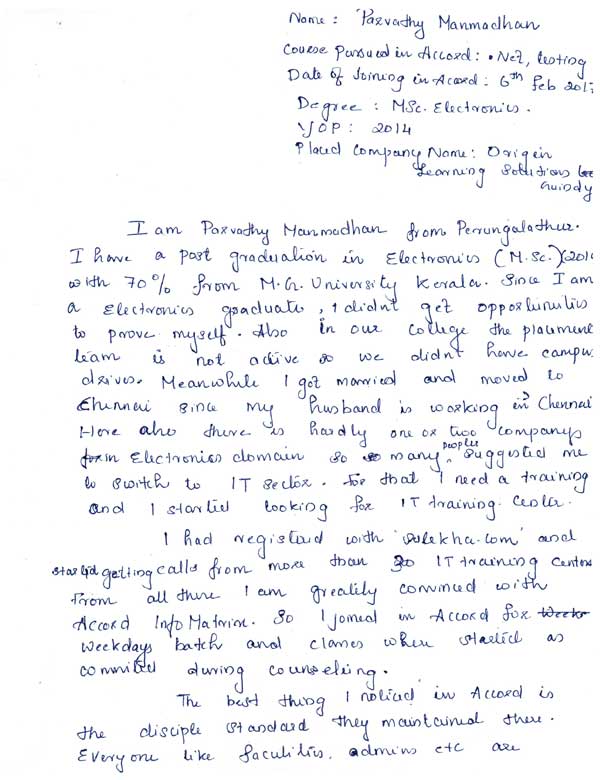 Name : Parvathy Manmadhan
Course Pursued in Accord : .Net, testing
Date of Joining in Accord : 6th Feb 201
Degree : MSc. Electronics.
YOP : 2014
Placed Company Name : Origin
Learning Solutions
Guindy
I am Parvathy Manmadhan from Perrungalathur.
I have a post graduation in Electronics (M.Sc.)(201
with 70% from M.G. University Kerala. Since I am
a Electronics graduate, I didnt get opportunities
to prove myself. Also in our college the placement
team is not active so we didnt have campu
drives. Meanwhile I got married and moved to
Chennai since my husband is working in Chennai
Here also there is hardly one or two companys
in Electronics domain so many peoples suggested me
to switch to IT sector. For that I need a training
and I started looking for IT training center.
I had registerd with 'sulekha.com' and
started getting calls from more than 30 IT training centers
From all these I am greatly convinced with
Accord Info Matrix. So I joined in Accord for
weekdays batch and classes where started as
committed during counseling.
The best thing I noticed in Accord is
the disciple standard they maintained there.
Everyone like faculities, admins etc are